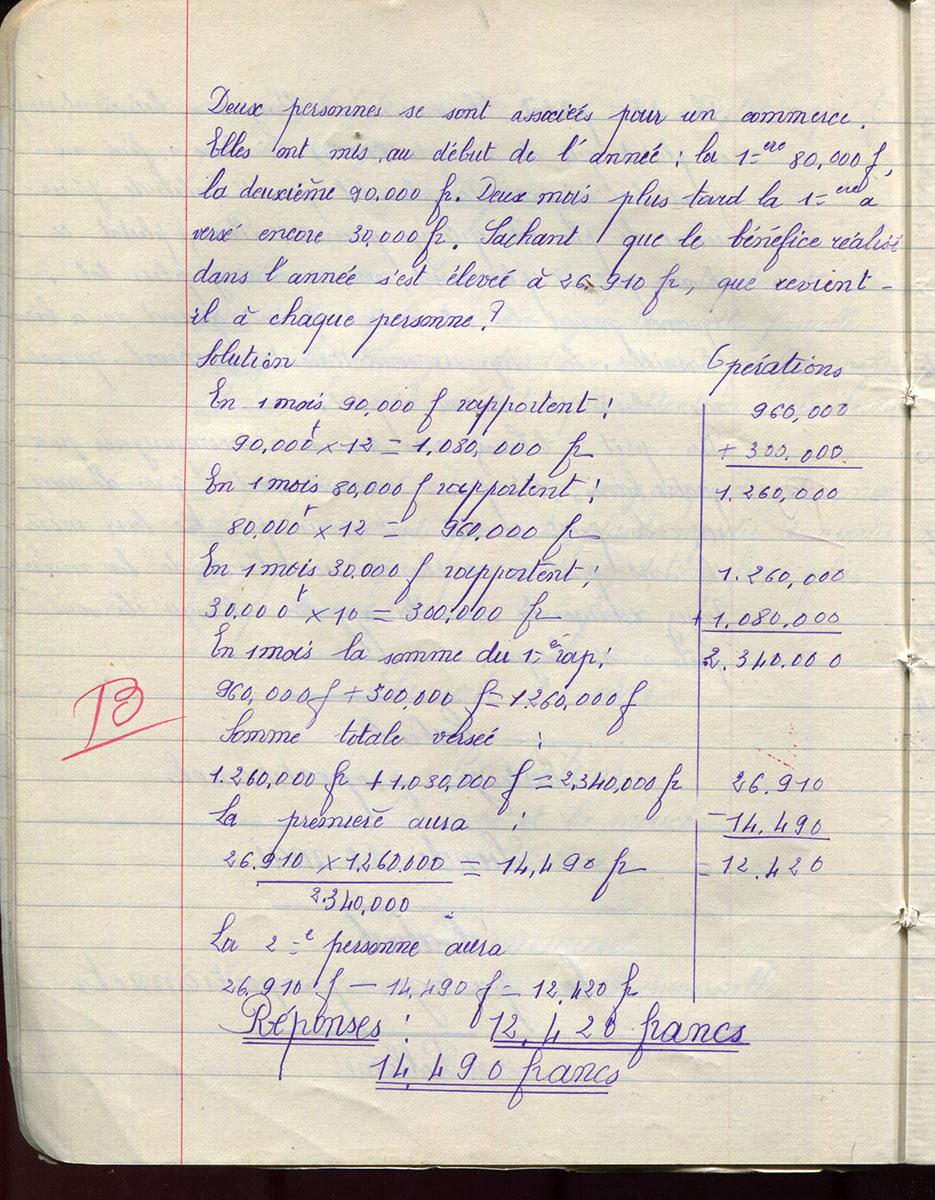 Deux personnes se sont associées pour un commerce.
Elles ont mis au début de l'année : la 1=ere 80,000 f,
la deuxième 90.000 fr. Deux mois plus tard la 1=ere a
versé encore 30.000 fr. Sachant que le bénéfice réalisé
dans l'année s'est éleveé à 26.910 fr, que revient-
il à chaque personne ?
Solution
Opérations
En 1 mois 90,000 f rapportent :
960,000
90,000f × 12 = 1.080,000 fr
+ 300.000
En 1 mois 80,000 f rapportent :
1.260,000
80,000f × 12 = 960,000 fr
En 1 mois 30.000 f rapportent :
1.260,000
30.000f × 10 = 300,000 fr
+ 1.080,000
En 1 mois la somme du 1=e rap :
2.340.000
960,000 f + 300,000 f = 1.260,000 f
B
Somme totale verseé :
1.260,000 fr + 1.080,000 f = 2,340,000 fr
26.910
La première aura :
- 14.490
26.910 × 1,260.000 = 14,490 fr
= 12.420
2.340,000
La 2=e personne aura
26.910 f — 14,490 f = 12,420 fr
Réponses : 12.420 francs
14,490 francs